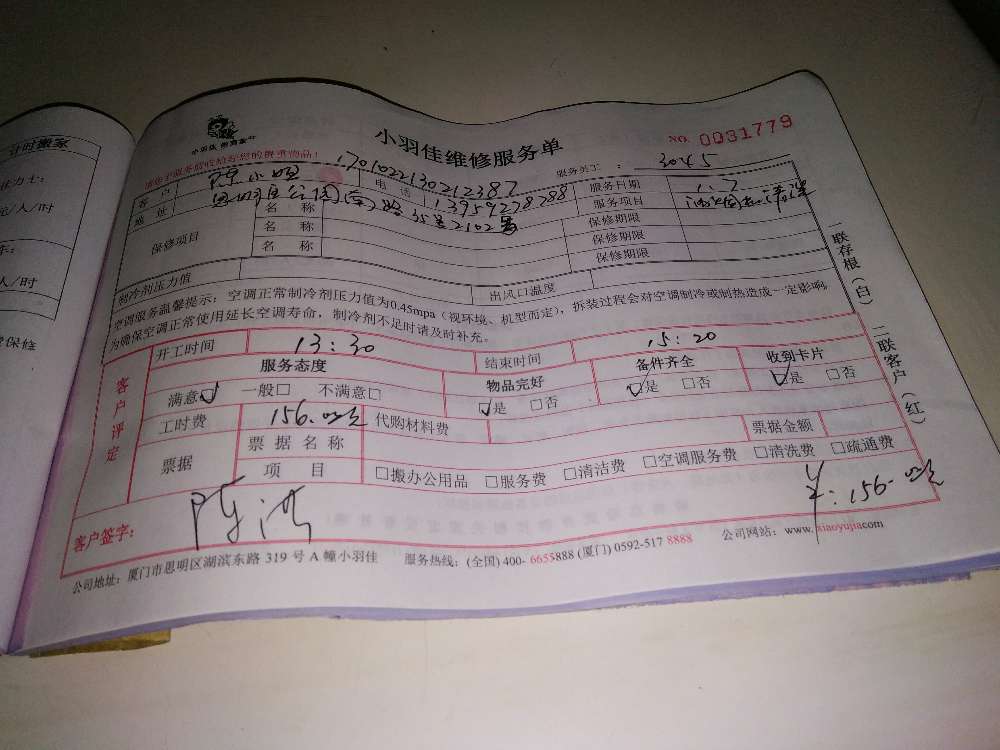 计时搬家
元/人/时
人/时
保修
小羽佳维修服务单
NO. 0031779
请您予服务前收拾好您的贵重物品!
1701022130212387
服务员工: 3045
客户 陈小姐 电话 13959278788 服务日期 1.7
地址 思明区公园南路35号2102 服务项目 油烟机清洗
保修项目 名称 保修期限
名称 保修期限
名称 保修期限
制冷剂压力值 出风口温度
空调服务温馨提示:空调正常制冷剂压力值为0.45mpa(视环境、机型而定),拆装过程会对空调制冷或制热造成一定影响,
为确保空调正常使用延长空调寿命,制冷剂不足时请及时补充。
客户评定
开工时间 13:30 结束时间 15:20
服务态度 物品完好 备件齐全 收到卡片
满意☑ 一般□ 不满意□ ☑是 □否 ☑是 □否 ☑是 □否
工时费 156.00元 代购材料费
票据 票据名称 票据金额
项目 □搬办公用品 □服务费 □清洁费 □空调服务费 □清洗费 □疏通费
客户签字: ¥:156.00元
公司地址:厦门市思明区湖滨东路 319 号 A 幢小羽佳 服务热线:(全国) 400- 6655888 (厦门) 0592-517 8888 公司网站:www. xiaoyujia.com
一联存根(白) 二联客户(红)